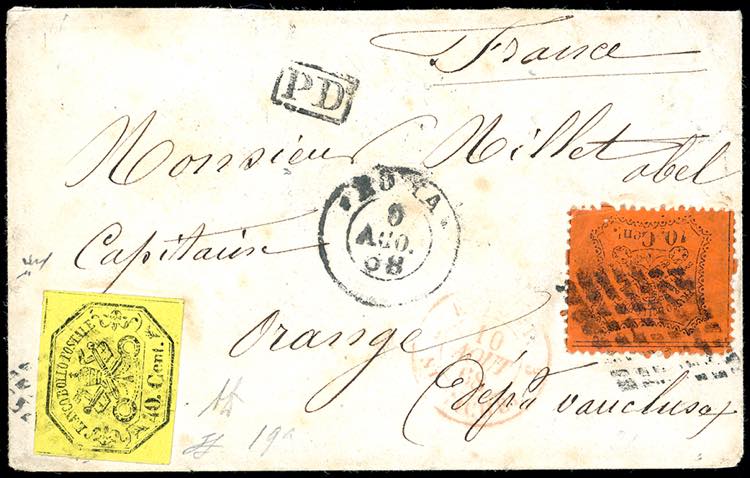 France
PD
Monsieur Millet abel
ROMA
9
AGO.
68
Capitaine
10. Cent.
Orange
FRANCOBOLLO POSTALE
40. Cent.
10
AOUT
68
(Dep.t vaucluse)
19a